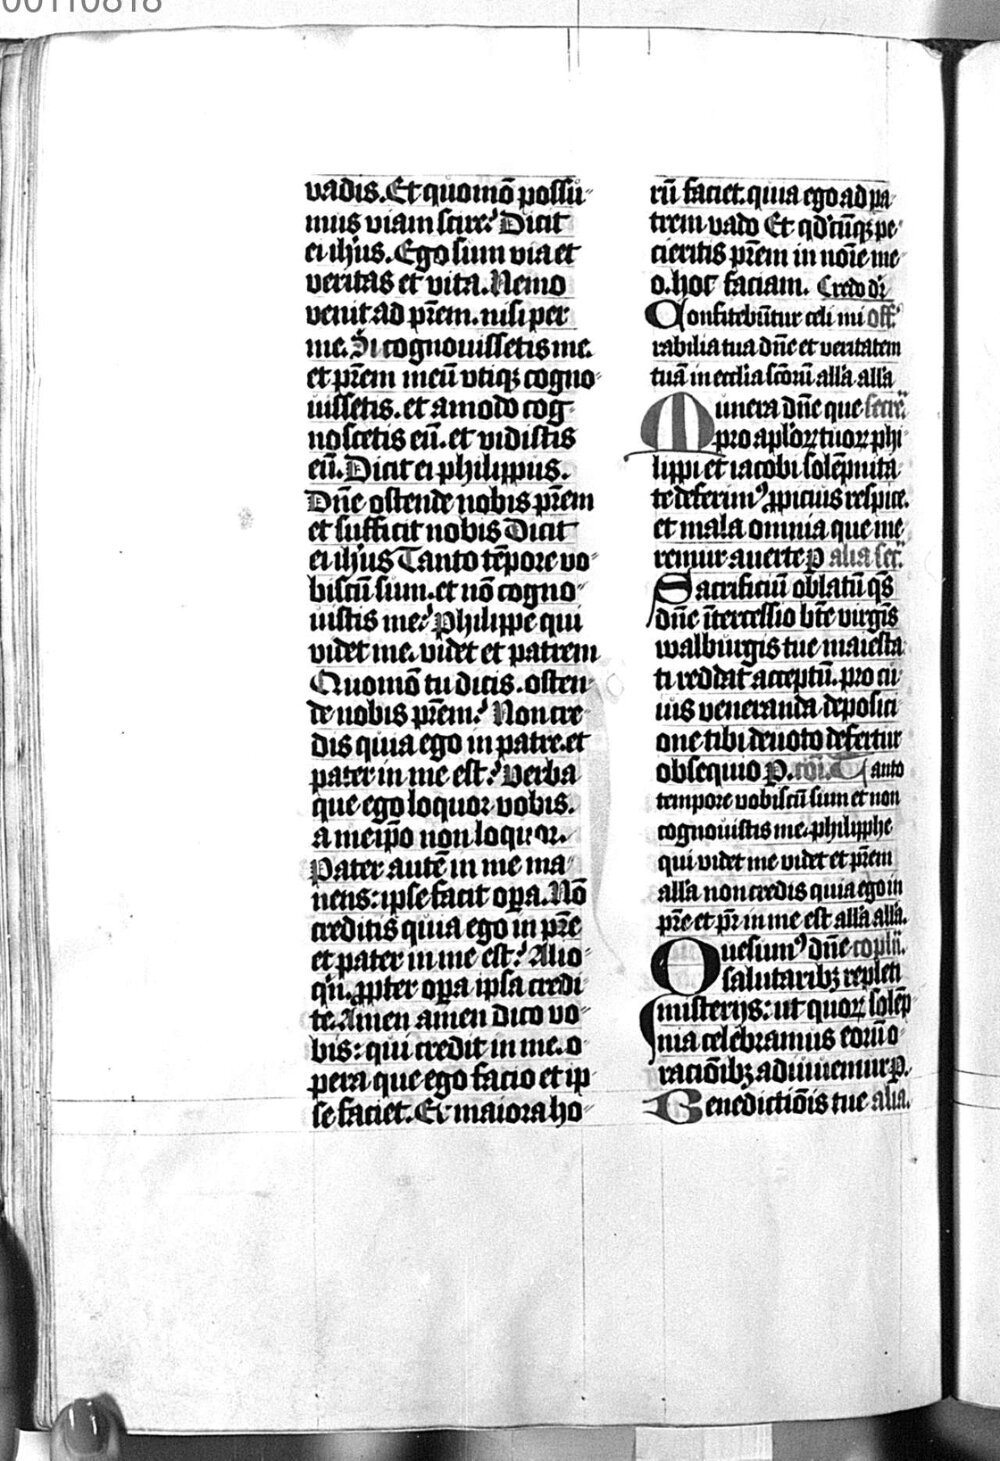 00110818
vadis. Et quomō possu-
mus viam scire? Dicit
ei ih̄us. Ego sum via et
veritas et vita. Nemo
venit ad p̄rem. nisi per
me. Si cognouissetis me.
et p̄rem meū vtiqꝫ cogno-
uissetis. et amodo cog-
noscetis eū. et vidistis
eū. Dicit ei philippus.
Dn̄e ostende nobis p̄rem
et sufficit nobis Dicit
ei ih̄us Tanto tēpore vo-
biscū sum. et nō cogno-
uistis me? Philippe qui
videt me. videt et patrem
Quomō tu dicis. osten-
de nobis p̄rem? Non cre-
dis quia ego in patre. et
pater in me est? Verba
que ego loquor vobis.
a meip̄o non loquor.
Pater autē in me ma-
nens: ipse facit oꝑa. Nō
creditis quia ego in p̄re
et pater in me est? Alio-
qn̄. ꝓpter oꝑa ipsa credi-
te. Amen amen dico vo-
bis: qui credit in me. o-
pera que ego facio et ip-
se faciet. Et maiora ho-
rū faciet. quia ego ad pa-
trem vado Et qd'cūqꝫ pe-
cieritis p̄rem in noīe me-
o. hoc faciam. Credo dr̄
Confitebūtur celi mi off̄.
rabilia tua dn̄e et veritatem
tuā in eccl̄ia scōrū all'a all'a
Munera dn̄e que secre.
pro apl'oꝝ tuoꝝ phi-
lippi et iacobi solēpnita-
te deferimꝰ ꝓpicius respice.
et mala omnia que me-
remur auerte ꝑ alia secr̄.
Sacrificiū oblatū qs̄
dn̄e īntercessio bt̄e virgīs
walburgis tue maiesta-
ti reddat acceptū. pro cu-
ius veneranda deposici-
one tibi deuoto defertur
obsequio P. cōi. Tanto
tempore vobiscū sum et non
cognouistis me. philipphe
qui videt me videt et p̄rem
all'a non credis quia ego in
p̄re et pr̄ in me est all'a all'a.
Quesumꝰ dn̄e copln̄.
salutaribꝫ repleti
misterijs: ut quoꝝ solēp-
nia celebramus eorū o-
racōibꝫ adiuuemur P.
Benedictiōis tue alia.